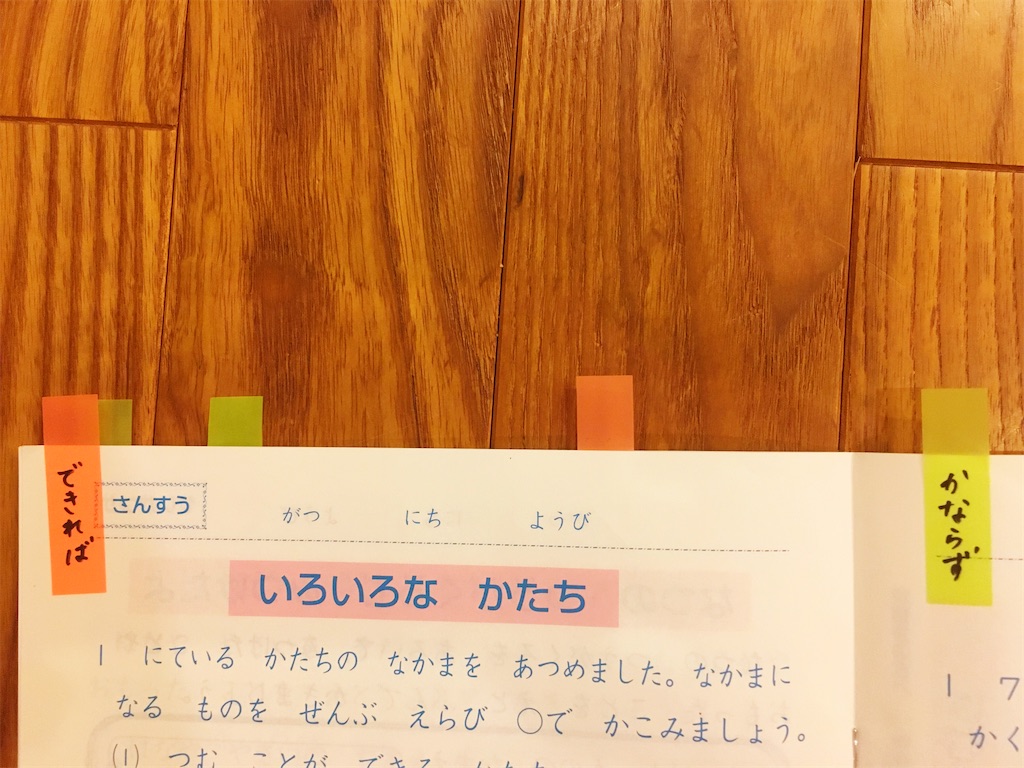 できれば
さんすう
がつ にち ようび
いろいろな かたち
1 にている かたちの なかまを あつめました。なかまに
なる ものを ぜんぶ えらび ○で かこみましょう。
(1) つむ ことが できる
かならず
1 7
かく